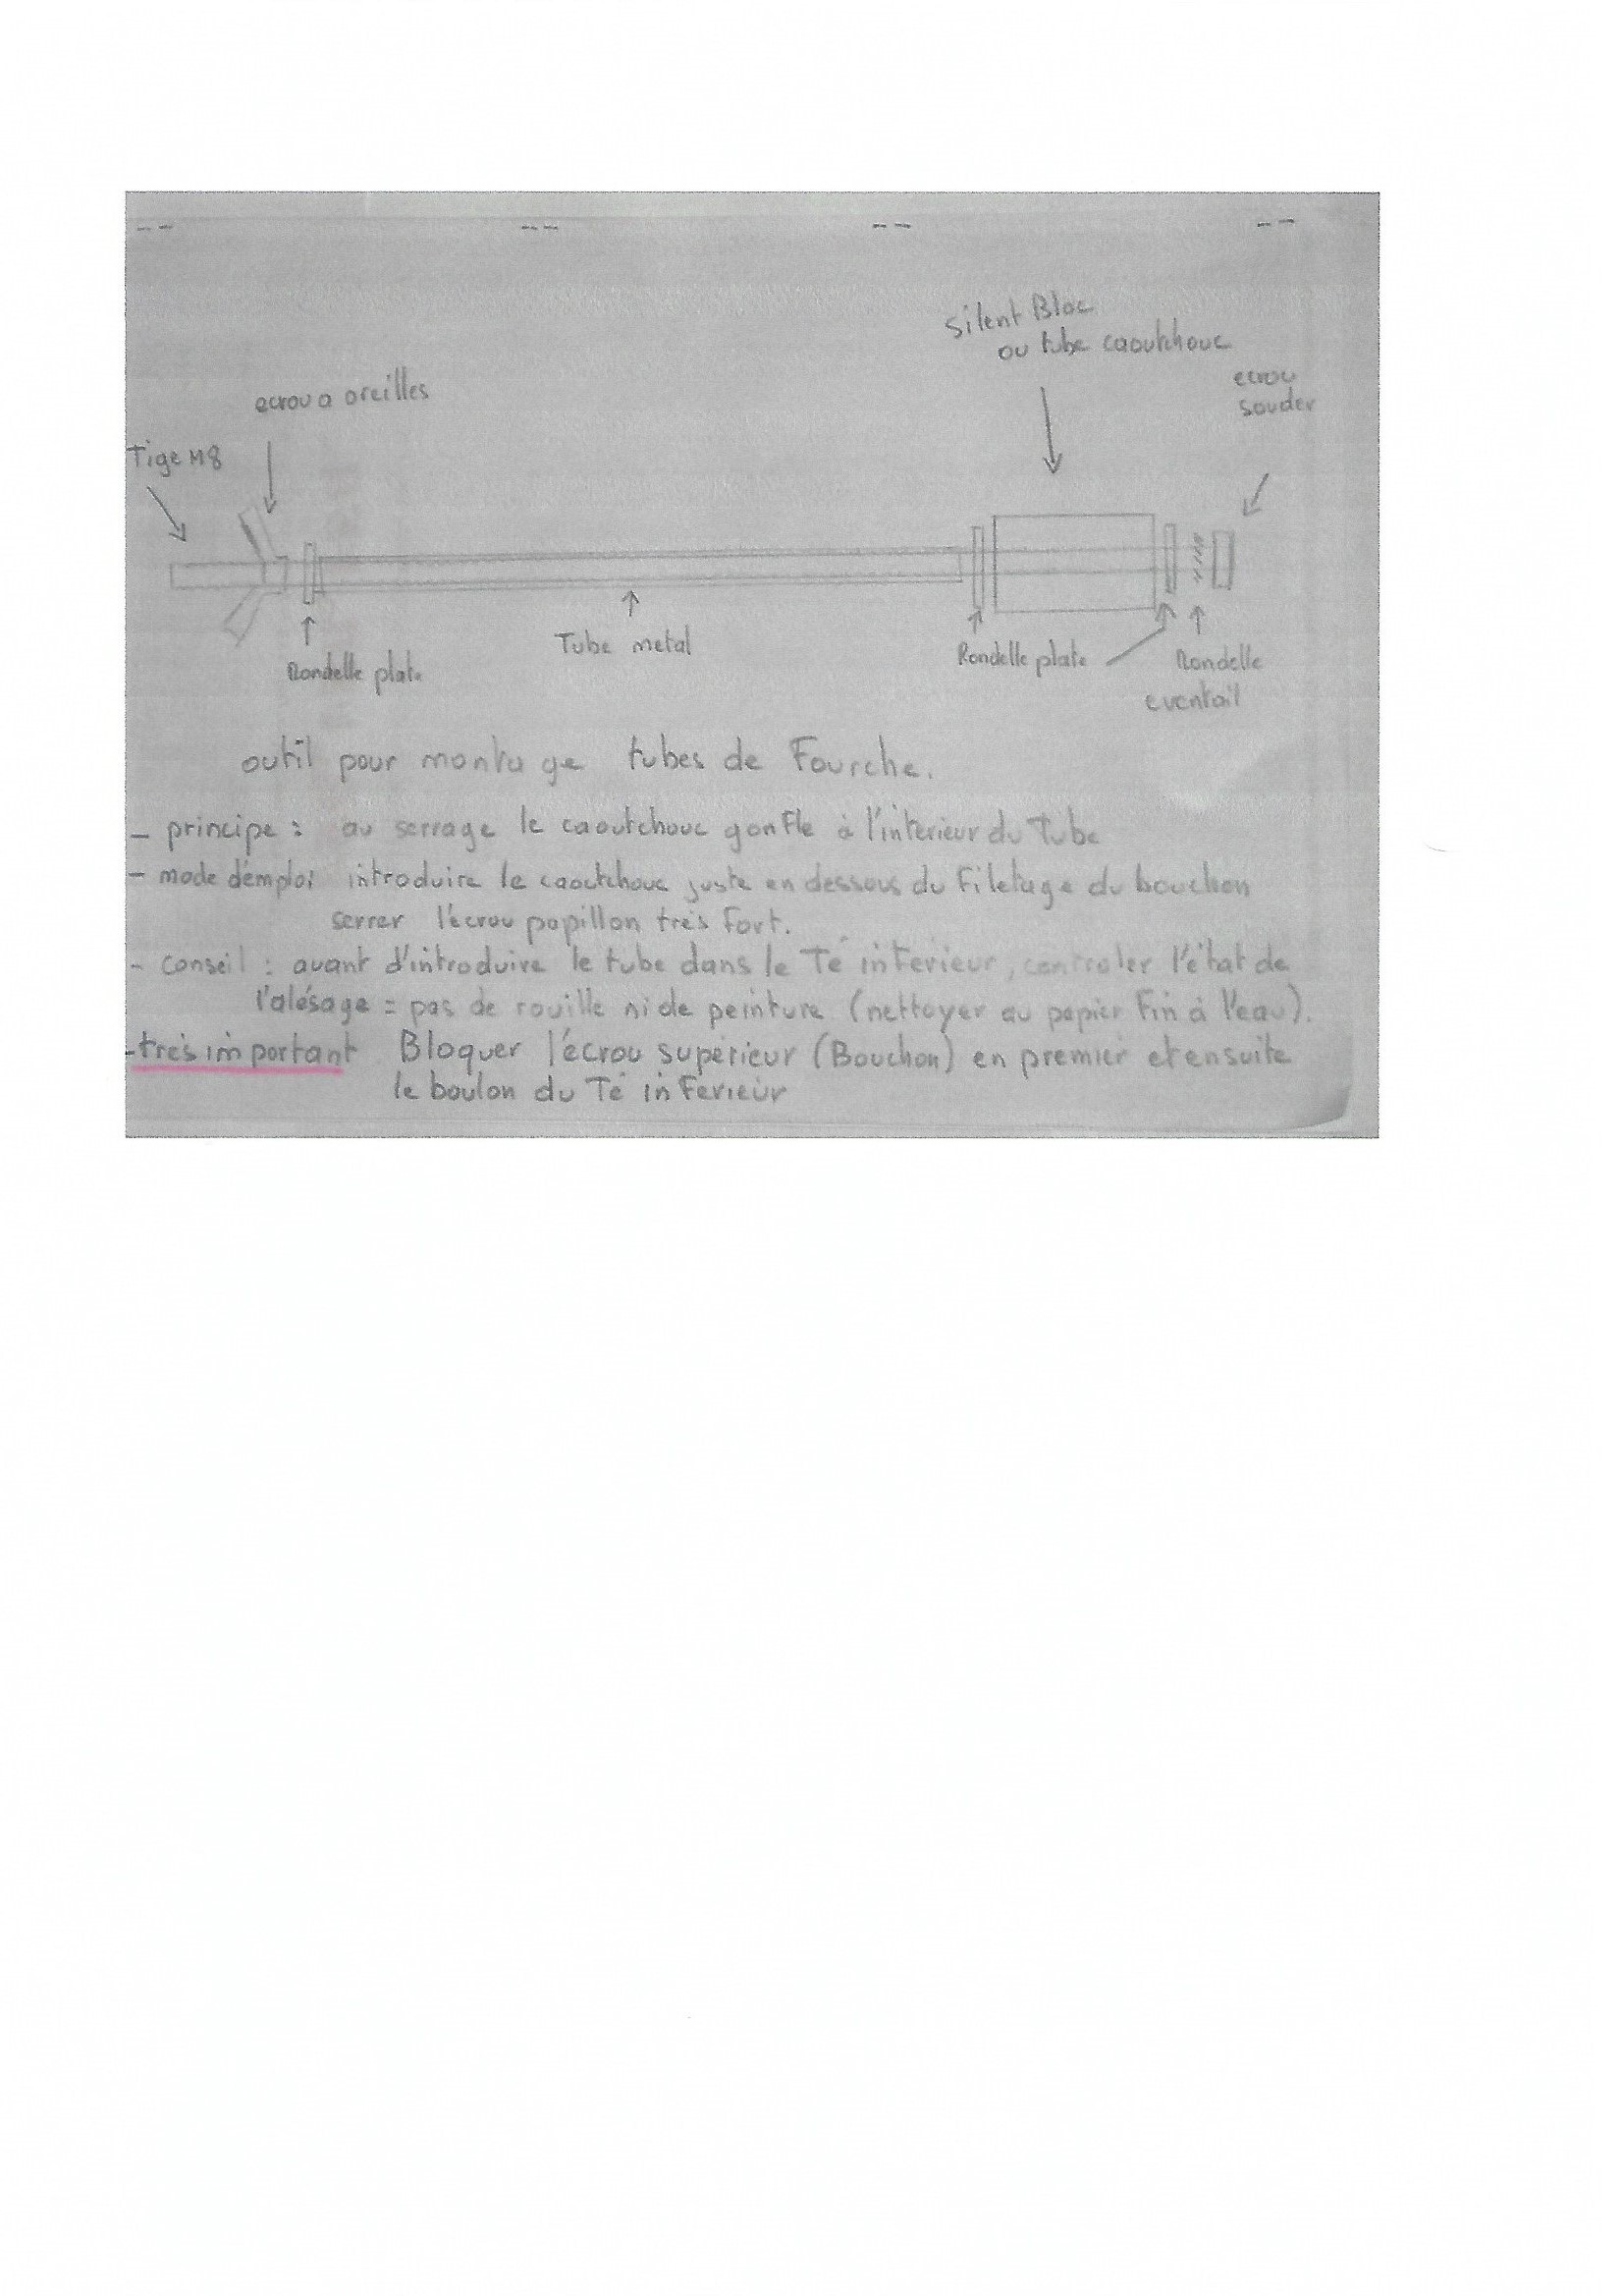 Silent Bloc
ou tube caoutchouc
ecrou
souder
ecrou a oreilles
Tige M8
Rondelle plate
Tube metal
Rondelle plate
Rondelle
eventail
outil pour montage tubes de Fourche.
- principe : au serrage le caoutchouc gonfle à l'interieur du Tube
- mode d'emploi introduire le caoutchouc juste en dessous du Filetage du bouchon
serrer l'écrou papillon très fort.
- conseil : avant d'introduire le tube dans le Té inferieur, controler l'état de
l'alésage = pas de rouille ni de peinture (nettoyer au papier Fin à l'eau).
- très important Bloquer l'écrou supérieur (Bouchon) en premier et ensuite
le boulon du Té inferieur